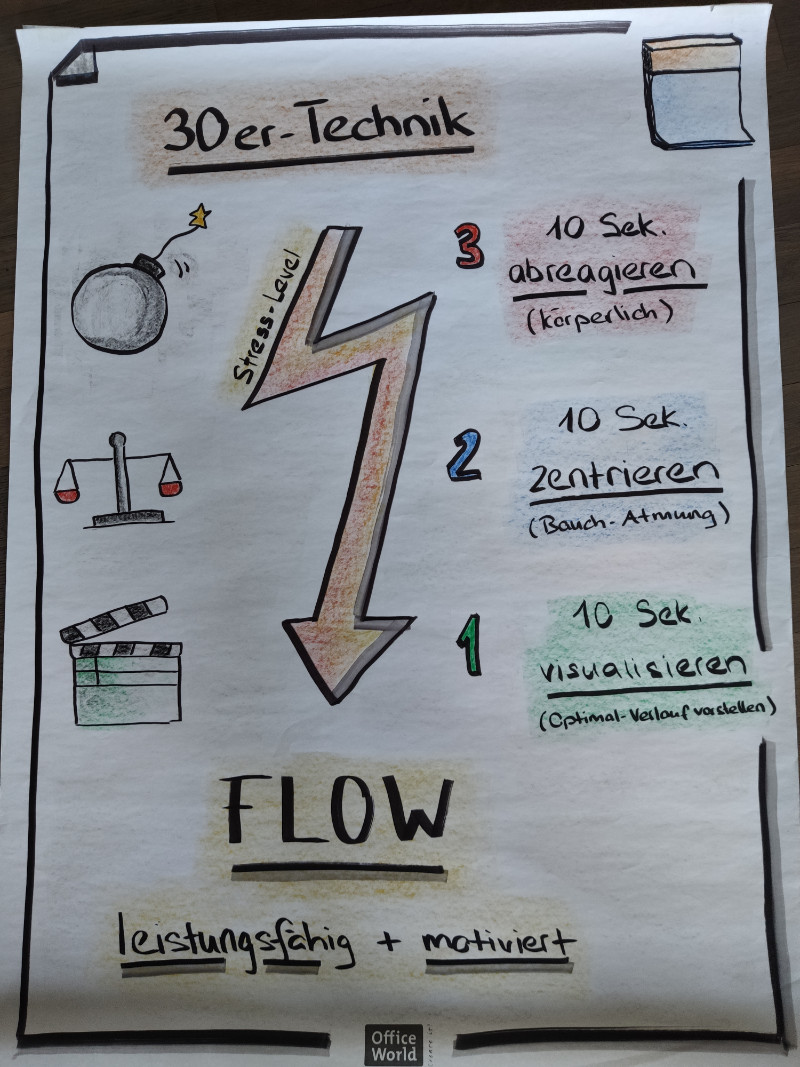 30er-Technik
Stress-Level
3
10 Sek.
abreagieren
(körperlich)
2
10 Sek.
zentrieren
(Bauch-Atmung)
1
10 Sek.
visualisieren
(Optimal-Verlauf vorstellen)
FLOW
leistungsfähig + motiviert
Office
World